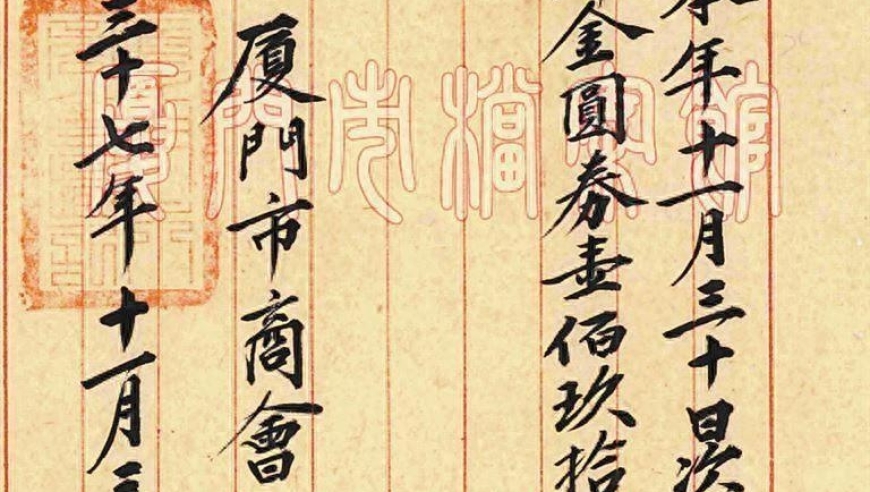 年十一月三十日次
金圓券壹佰玖拾
厦門市商會
三十七年十一月三
厦門市檔案館